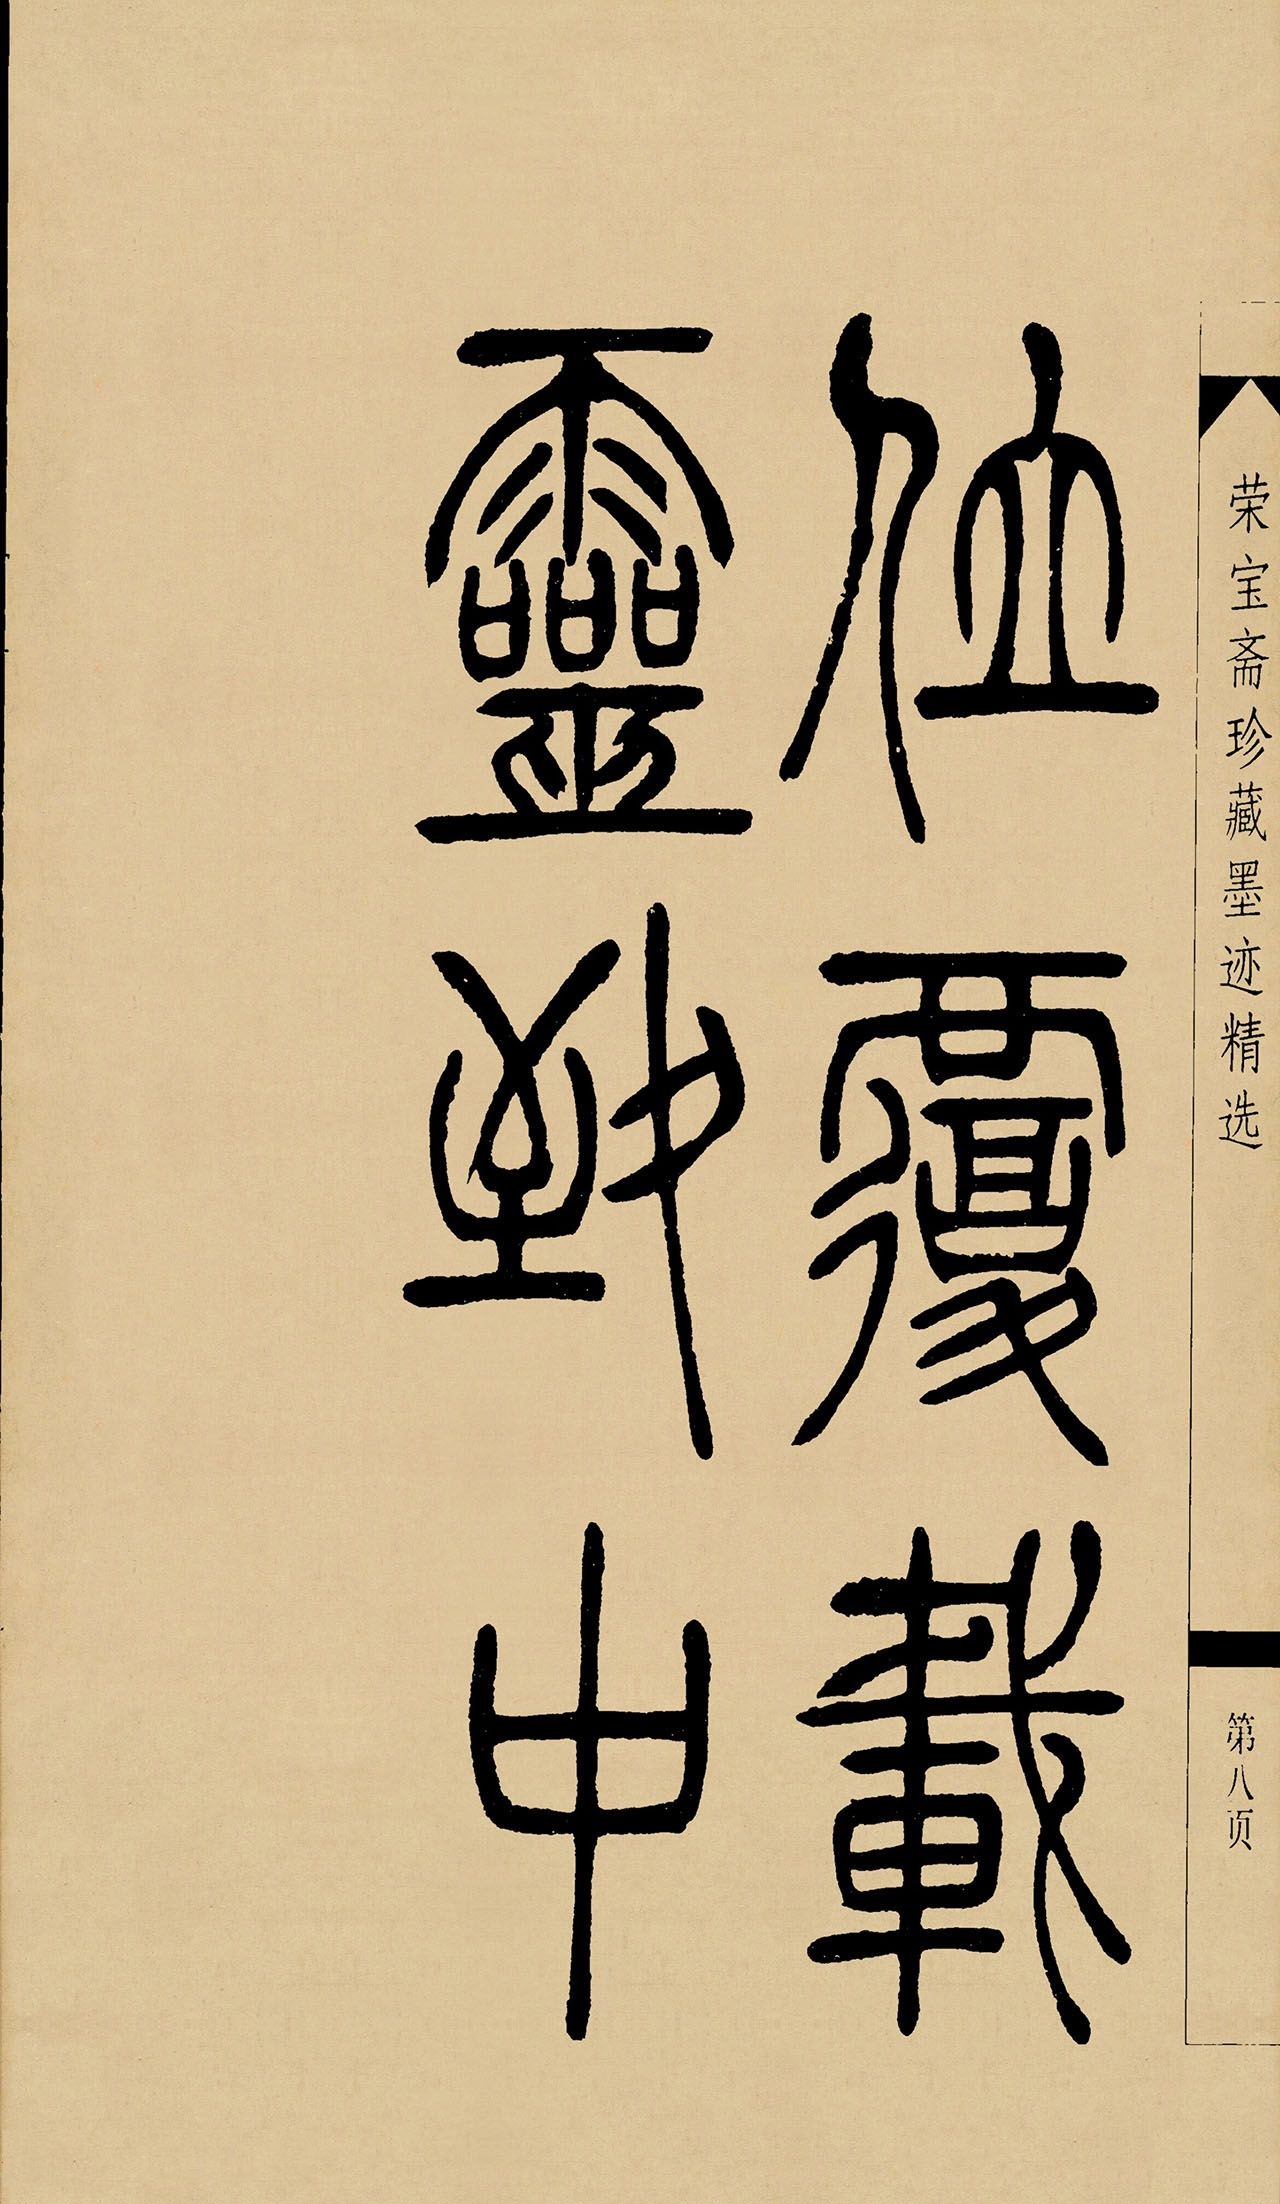 荣宝斋珍藏墨迹精选
第八页
位覆載
靈致中